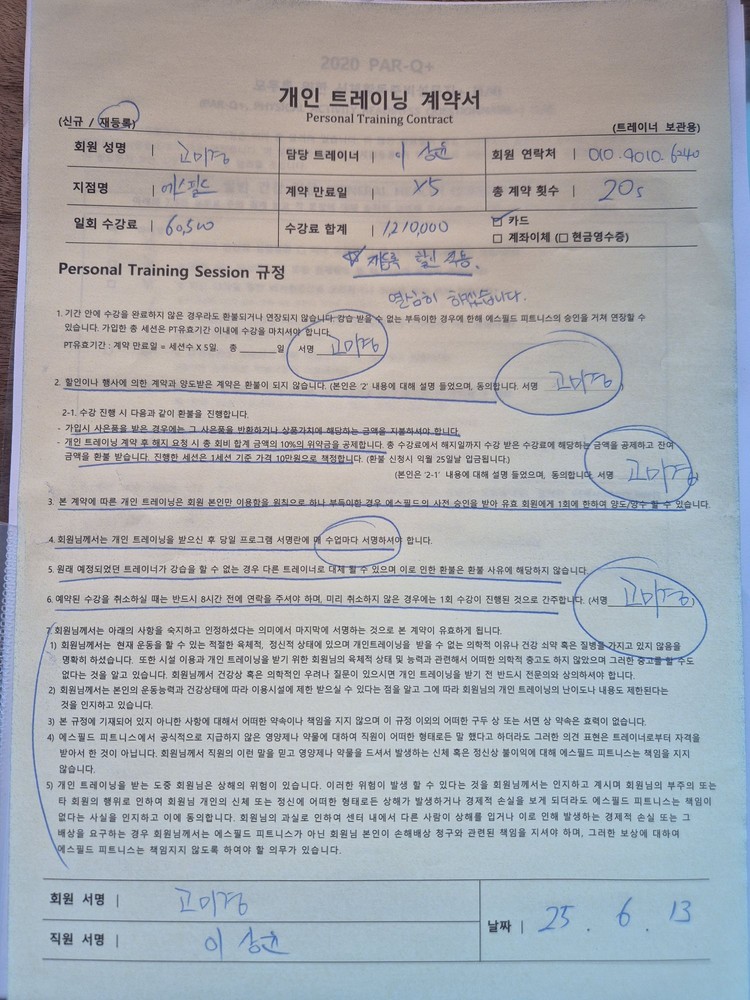 2020 PAR-Q+
개인 트레이닝 계약서
Personal Training Contract
(신규 / 재등록)
(트레이너 보관용)
회원 성명 | 고미경 담당 트레이너 | 이 상 회원 연락처 | 010.9010.6240
지점명 | 에스필드 계약 만료일 | X5 총 계약 횟수 | 20s
일회 수강료 | 60,500 수강료 합계 | 1,210,000 ☑ 카드
☐ 계좌이체 (☐ 현금영수증)
☆ 재등록 할인 적용.
Personal Training Session 규정
열심히 하겠습니다.
1. 기간 안에 수강을 완료하지 않은 경우라도 환불되거나 연장되지 않습니다. 강습 받을 수 없는 부득이한 경우에 한해 에스필드 피트니스의 승인을 거쳐 연장할 수
있습니다. 가입한 총 세션은 PT유효기간 이내에 수강을 마치셔야 합니다.
PT유효기간 : 계약 만료일 = 세션수 X 5일. 총 ______일 서명 고미경
2. 할인이나 행사에 의한 계약과 양도받은 계약은 환불이 되지 않습니다. (본인은 '2' 내용에 대해 설명 들었으며, 동의합니다. 서명 고미경)
2-1. 수강 진행 시 다음과 같이 환불을 진행합니다.
- 가입시 사은품을 받은 경우에는 그 사은품을 반환하거나 상품가치에 해당하는 금액을 지불하셔야 합니다.
- 개인 트레이닝 계약 후 해지 요청 시 총 회비 합계 금액의 10%의 위약금을 공제합니다. 총 수강료에서 해지일까지 수강 받은 수강료에 해당하는 금액을 공제하고 잔여
금액을 환불 받습니다. 진행한 세션은 1세션 기준 가격 10만원으로 책정합니다. (환불 신청시 익월 25일날 입금됩니다.)
(본인은 '2-1' 내용에 대해 설명 들었으며, 동의합니다. 서명 고미경)
3. 본 계약에 따른 개인 트레이닝은 회원 본인만 이용함을 원칙으로 하나 부득이한 경우 에스필드의 사전 승인을 받아 유효 회원에게 1회에 한하여 양도/양수 할 수 있습니다.
4. 회원님께서는 개인 트레이닝을 받으신 후 당일 프로그램 서명란에 매 수업마다 서명하셔야 합니다.
5. 원래 예정되었던 트레이너가 강습을 할 수 없는 경우 다른 트레이너로 대체 될 수 있으며 이로 인한 환불은 환불 사유에 해당하지 않습니다.
6. 예약된 수강을 취소하실 때는 반드시 8시간 전에 연락을 주셔야 하며, 미리 취소하지 않은 경우에는 1회 수강이 진행된 것으로 간주합니다. (서명 고미경)
7. 회원님께서는 아래의 사항을 숙지하고 인정하셨다는 의미에서 마지막에 서명하는 것으로 본 계약이 유효하게 됩니다.
1) 회원님께서는 현재 운동을 할 수 있는 적절한 육체적, 정신적 상태에 있으며 개인트레이닝을 받을 수 없는 의학적 이유나 건강 쇠약 혹은 질병을 가지고 있지 않음을
명확히 하셨습니다. 또한 시설 이용과 개인 트레이닝을 받기 위한 회원님의 육체적 상태 및 능력과 관련해서 어떠한 의학적 충고도 하지 않았으며 그러한 충고를 할 수도
없다는 것을 알고 있습니다. 회원님께서 건강상 혹은 의학적인 우려나 질문이 있으시면 개인 트레이닝을 받기 전 반드시 전문의와 상의하셔야 합니다.
2) 회원님께서는 본인의 운동능력과 건강상태에 따라 이용시설에 제한 받으실 수 있다는 점을 알고 그에 따라 회원님의 개인 트레이닝의 난이도나 내용도 제한된다는
것을 인지하고 있습니다.
3) 본 규정에 기재되어 있지 아니한 사항에 대해서 어떠한 약속이나 책임을 지지 않으며 이 규정 이외의 어떠한 구두 상 또는 서면 상 약속은 효력이 없습니다.
4) 에스필드 피트니스에서 공식적으로 지급하지 않은 영양제나 약물에 대하여 직원이 어떠한 형태로든 말 했다고 하더라도 그러한 의견 표현은 트레이너로부터 자격을
받아서 한 것이 아닙니다. 회원님께서 직원의 이런 말을 믿고 영양제나 약물을 드셔서 발생하는 신체 혹은 정신상 불이익에 대해 에스필드 피트니스는 책임을 지지
않습니다.
5) 개인 트레이닝을 받는 도중 회원님은 상해의 위험이 있습니다. 이러한 위험이 발생 할 수 있다는 것을 회원님께서는 인지하고 계시며 회원님의 부주의 또는
타 회원의 행위로 인하여 회원님 개인의 신체 또는 정신에 어떠한 형태로든 상해가 발생하거나 경제적 손실을 보게 되더라도 에스필드 피트니스는 책임이
없다는 사실을 인지하고 이에 동의합니다. 회원님의 과실로 인하여 센터 내에서 다른 사람이 상해를 입거나 이로 인해 발생하는 경제적 손실 또는 그
배상을 요구하는 경우 회원님께서는 에스필드 피트니스가 아닌 회원님 본인이 손해배상 청구와 관련된 책임을 지셔야 하며, 그러한 보상에 대하여
에스필드 피트니스는 책임지지 않도록 하여야 할 의무가 있습니다.
회원 서명 | 고미경
날짜 | 25 . 6 . 13
직원 서명 | 이 상